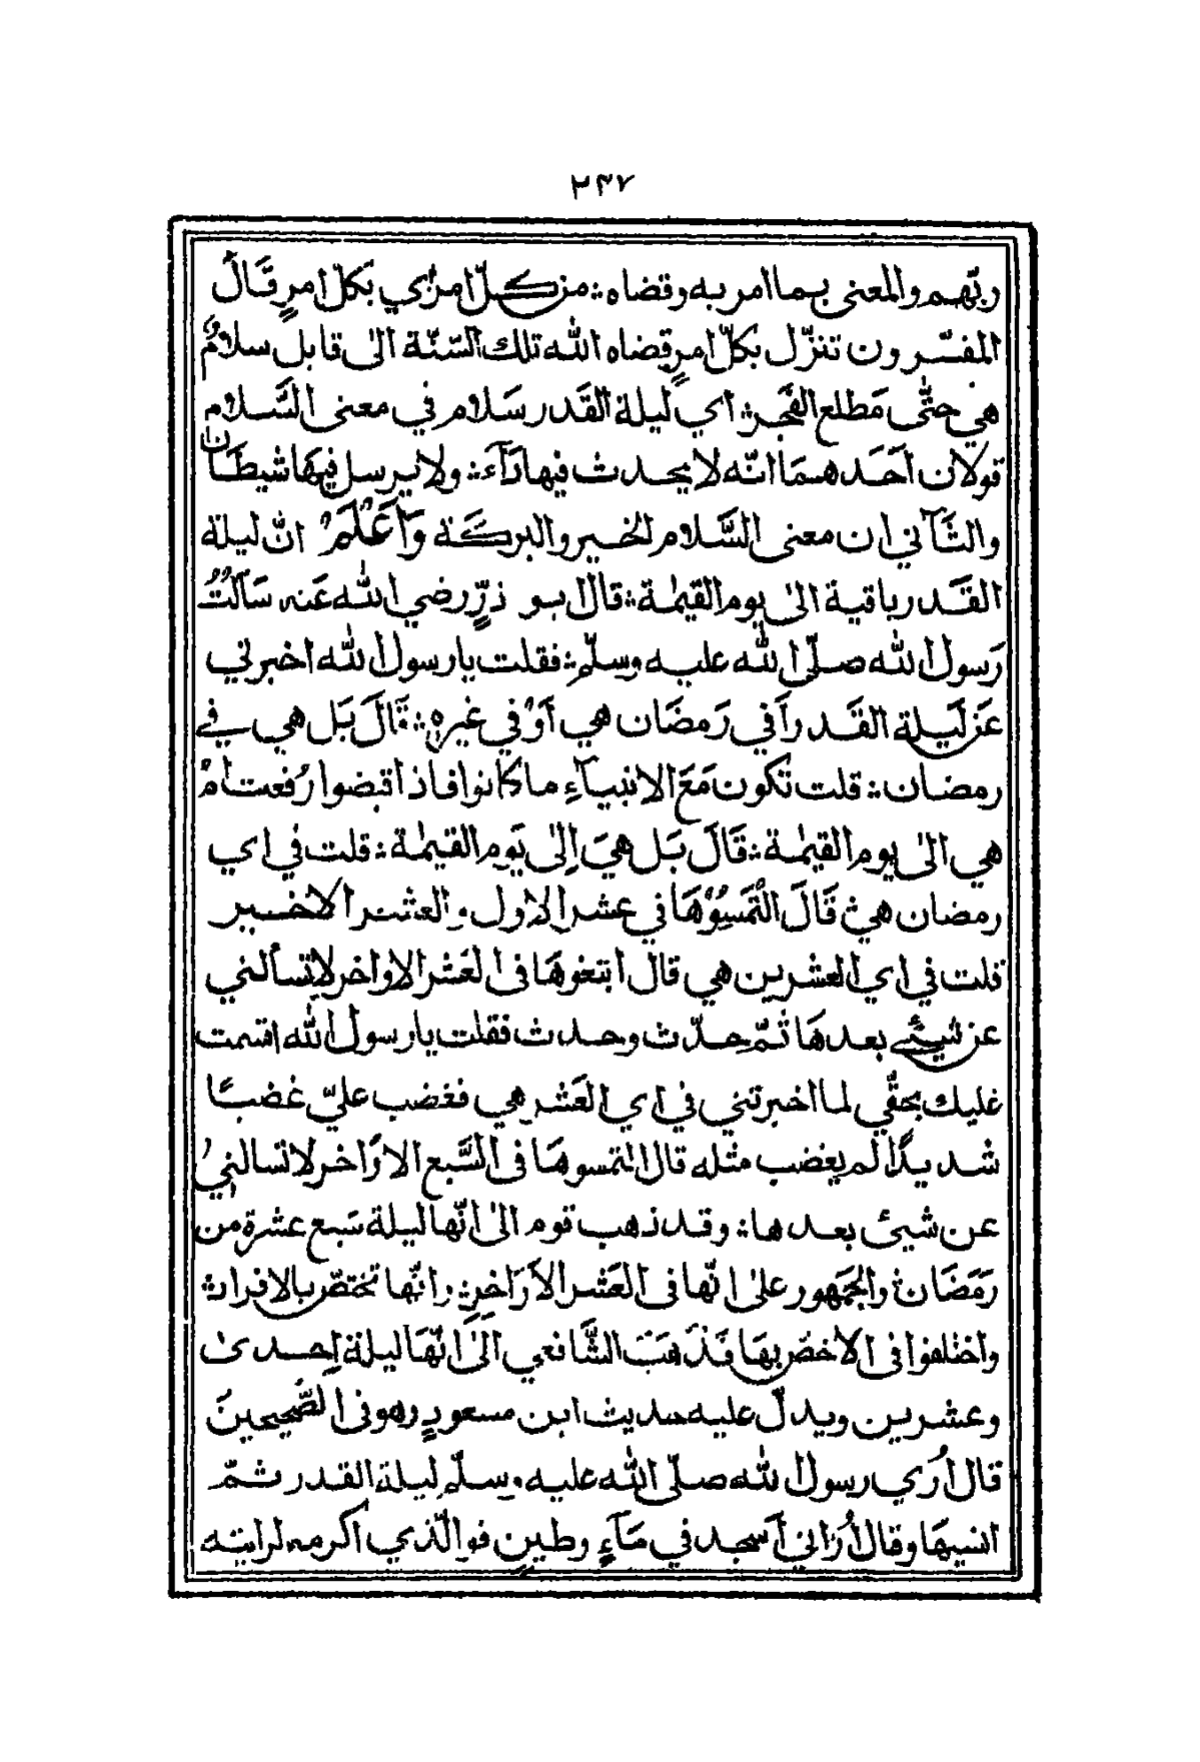 ٢٣٧
ربّهم والمعنى بما امر به وقضاه ؞ من كلّ امرٍ اي بكلّ امرٍ قَالَ
المفسّرون تنزّل بكلّ امرٍ قضاه اللّٰه تلك السّنة الىٰ قابل سلامٌ
هي حتّى مَطلع الفَجر ؞ اي ليلة القَدر سَلام في معنى السَّلام
قولان اَحَدهمَا انّه لا يحدث فيها دَآء ؞ ولا يرسل فيهَا شيطَان
والثَّآني ان معنى السَّلام الخير والبركَة وَاَعْلَمْ انّ ليلة
القَدر باقية الىٰ يوم القيٰمة ؞ قال بو ذرٍّ رضي اللّٰه عَنه سَاَلتُ
رَسول اللّٰه صلّى اللّٰه عليه وسلّم ؞ فقلت يا رسول اللّٰه اخبرني
عَن لَيلة القَدر اَفي رَمضَان هي اَوْ في غَيرهِ ؞ قَالَ بَل هي في
رمضان ؞ قلت تكون مَعَ الانبيآءِ ما كانوا فاذا قبضوا رُفعت امْ
هي الىٰ يوم القيٰمة ؞ قَالَ بَل هيَ اِلىٰ يَوم القيٰمة ؞ قلت في اي
رمضان هي ؞ قَالَ الْتَمسُوْهَا في عشر الاول والعشر الاخير
قلت في اي العشرين هي قال ابتغوهَا فى العَشر الاواخر لا تسألني
عن شيئٍ بعدهَا ثمّ حدّث وحدث فقلت يا رسول اللّٰه اقسمت
عليك بحقّي لما اخبرتني في اي العَشر هي فغضب عليّ غضبًا
شديدًا لم يغضب مثله قال التمسوهَا فى السَّبع الاوَاخر لا تسالني
عن شيئ بعدها ؞ وقد ذهب قوم الىٰ انّها ليلة سَبع عشرة من
رَمَضَان ؞ والجَمهور علىٰ انّها فى العَشر الاَوَاخرِ ؞ وانّها تختصّ بالافراد
واختلفوا فى الاَخصّ بهَا فَذهَبَ الشَّافعي الَىٰ انّهَا ليلة اِحدىٰ
وعشرين ويدلّ عليه حديث ابن مسعودٍ وهو فى الصَّحيحينَ
قال اُري رسول اللّٰه صلّى اللّٰه عليه وسلّم ليلة القدر ثمّ
انسيهَا وقال اُرَاني اَسجد في مَآءٍ وطينٍ فوالّذي اكرمه لرايته